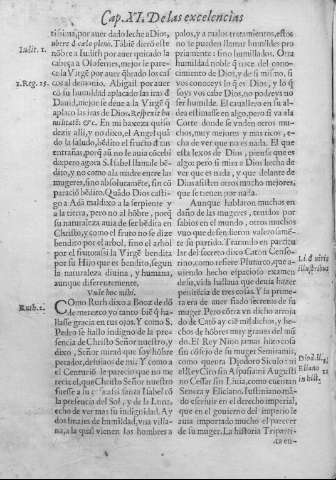 Cap. XI. De las excelencias
tissima, por auer dado leche a Dios,
Iudit. 1.
nombre q̃ cielo plano. Tãbiẽ dierõ este
nõbre a Iudith por auer quitado la
cabeça a Olofernes, mejor le parece
la Virgẽ por auer
2. Reg. 25.
al demonio. Abigail por auer
cõ su humildad aplacado las iras d̃
Dauid, mejor se deue a la Virgẽ q̃
aplaco las iras de Dios, Respexit humilitatẽ
&c. En mi baxeza quiso
dezir alli, y no dixo, el Angel quãdo
la saludo, bẽdito el fructo d̃ tus
entrañas, porq̃ aũ no le auia
pero agora S. Isabel llamale bẽdito,
y no como a la madre entre las
mugeres, sino absolutamẽte, sin cõparació
bẽdito. Quãdo Dios castigo
a Adã maldixo a la serpiente y
a la tierra, pero no al hõbre, porq̃
su naturaleza auia de ser bẽdita en
Christo, y como el fruto no se dize
bendito por el arbol, sino el arbol
por el fruto, assi la Virgẽ bendita
por su Hijo que es bendito, segun
la naturaleza diuina, y humana,
aunque diferentemente.
Vnde hoc mihi.
Ruth. 2.
COmo Ruth dixo a Booz de dõde
merezco yo tanto biẽ q̃ hallasse
gracia en tus ojos. Y como S.
Pedro se hallo indigno de la presencia
de Christo Señor nuestro, y
dixo, Señor mirad que soy hõbre
pecador, desuiaos de mi. Y como
el Centuriõ le parecio que no merecia
el, que Christo Señor nuestro
fuesse a su casa assi santa Isabel cõ
la presencia del Sol, y de la Luna,
echo de ver mas su indignidad. Ay
dos linajes de humildad, vna villana,
a la qual vienen los hombres a
palos, y a malos tratamientos, estos
no se pueden llamar humildes propriamente:
sino humillados. Otra
humildad noble q̃ nace del conocimiento
de Dios, y de si mismo, si
vos conoceys lo q̃ es Dios, y lo q̃
soys vos cabe Dios, no podreys no
ser humilde. El cauallero en su aldea
estimasse en algo, pero si va a la
Corte donde se vẽden otros muchos,
muy mejores y mas ricos, echa
de ver que no es nada. El que
esta lexos de Dios, piensa que es
algo: pero si mira a Dios hecha de
ver que es nada, y que delante de
Dios assisten otros mucho mejores,
que se tienen por nada.
Aunque hablaron muchos en
daño de las mugeres, tenidos por
sabios en el mundo, otros muchos
vuo que defendieron valerosamẽte
su partido. Tratando en particular
del secreto dixo Caton Censorino,
como refiere Plutarco, que auiendo
Li. d̃ uiris
illustribus
hecho espacioso examen
de si, vio hallaua que deuia hazer
penitencia de tres cosas. Y la primera
era de auer fiado secretos de su
muger. Pero cõtra vn dicho arrojado
de Catõ ay ciẽ mil dichos, y hechos
de hõbres muy graues del mũdo.
El Rey Nino jamas hizo cosa
sin cõsejo de su muger Semiramis,
Diod. li. 3
como quenta Diodoro Siculo: ni
Eliano 12
el Rey Ciro sin Aspasia: ni Augusto
in hist.
no Cessar sin Liuia, como cuentan
Seneca y Eliciano. Iustiniano mãdo
escriuir en el derecho imperial,
que en el gouierno del imperio le
auia importado mucho el parecer
de su muger. La historia Triparti-
ta en-